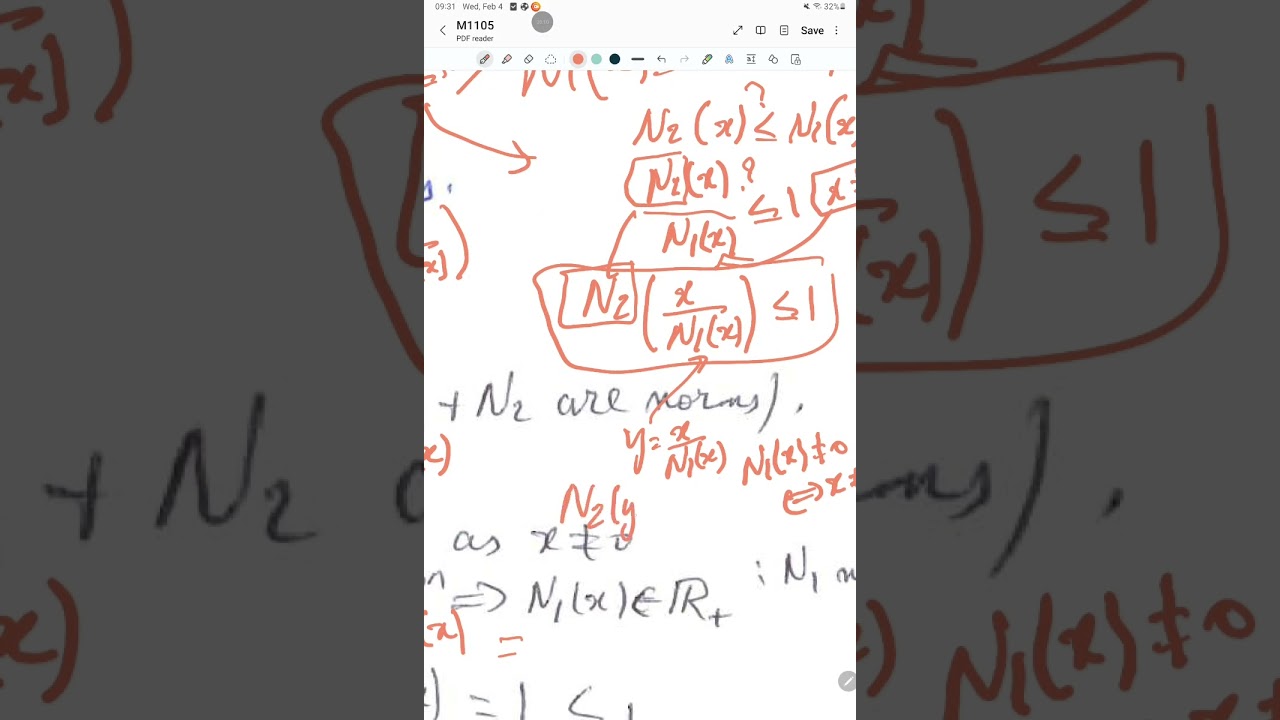 09:31 Wed, Feb 4
32%
M1105
PDF reader
Save
N2 (x) ≤ N1(x
?
N2(x) ?
≤ 1
N1(x)
N2 ( x / N1(x) ) ≤ 1
+ N2 are norms).
y = x / N1(x)
N1(x) ≠ 0
⟺ x ≠
N2(y
as x ≠ 0
⟹ N1(x) ∈ ℝ+
: N1
x) =
) = 1 ≤ 1